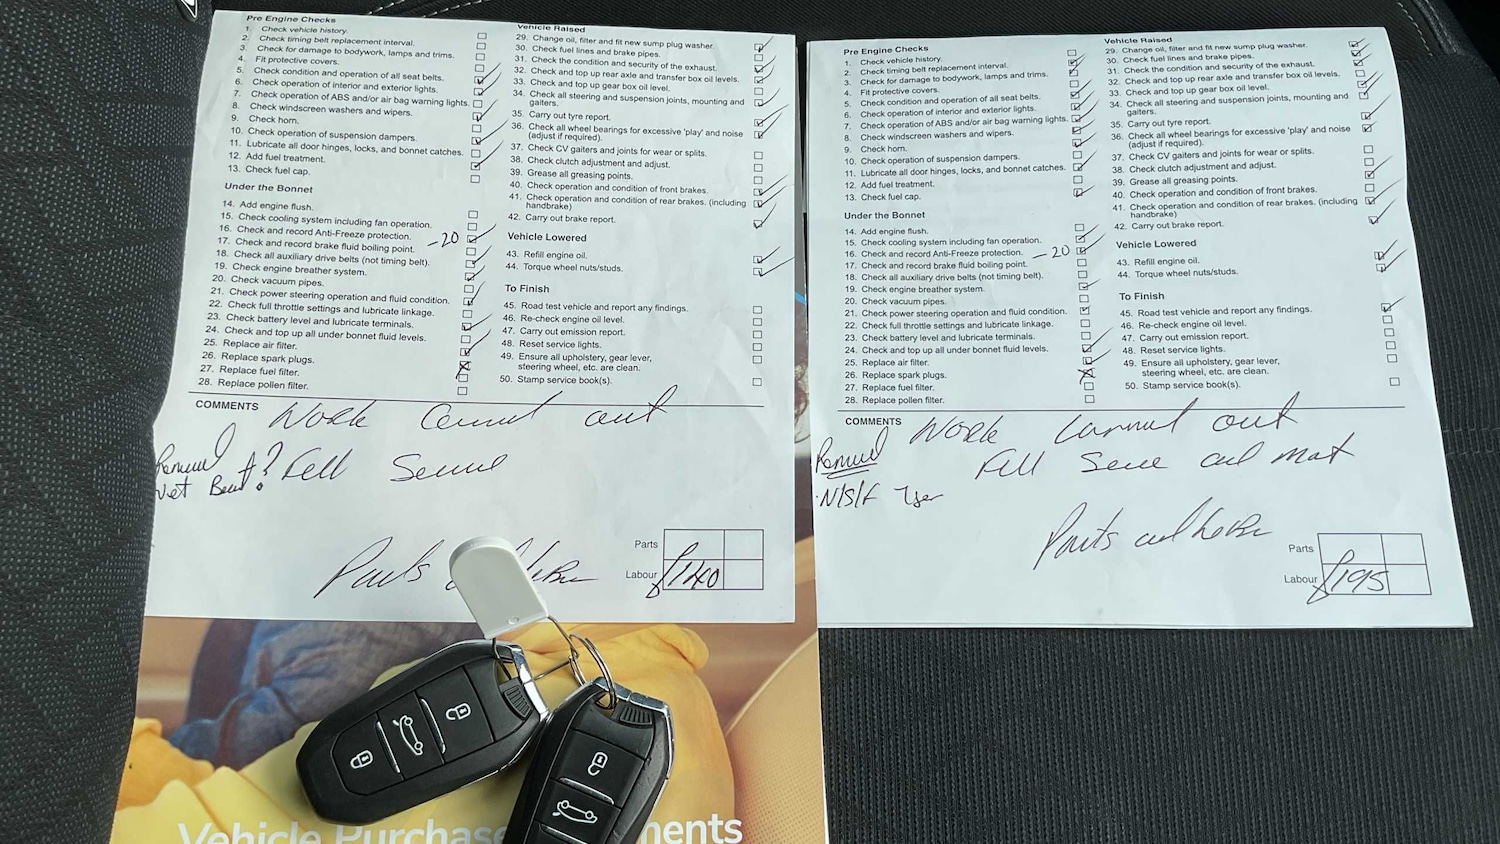 Pre Engine Checks
1. Check vehicle history.
2. Check timing belt replacement interval.
3. Check for damage to bodywork, lamps and trims.
4. Fit protective covers.
5. Check condition and operation of all seat belts.
6. Check operation of interior and exterior lights.
7. Check operation of ABS and/or air bag warning lights.
8. Check windscreen washers and wipers.
9. Check horn.
10. Check operation of suspension dampers.
11. Lubricate all door hinges, locks, and bonnet catches.
12. Add fuel treatment.
13. Check fuel cap.
Under the Bonnet
14. Add engine flush.
15. Check cooling system including fan operation.
16. Check and record Anti-Freeze protection. -20
17. Check and record brake fluid boiling point.
18. Check all auxiliary drive belts (not timing belt).
19. Check engine breather system.
20. Check vacuum pipes.
21. Check power steering operation and fluid condition.
22. Check full throttle settings and lubricate linkage.
23. Check battery level and lubricate terminals.
24. Check and top up all under bonnet fluid levels.
25. Replace air filter.
26. Replace spark plugs.
27. Replace fuel filter.
28. Replace pollen filter.
Vehicle Raised
29. Change oil, filter and fit new sump plug washer.
30. Check fuel lines and brake pipes.
31. Check the condition and security of the exhaust.
32. Check and top up rear axle and transfer box oil levels.
33. Check and top up gear box oil level.
34. Check all steering and suspension joints, mounting and
gaiters.
35. Carry out tyre report.
36. Check all wheel bearings for excessive 'play' and noise
(adjust if required).
37. Check CV gaiters and joints for wear or splits.
38. Check clutch adjustment and adjust.
39. Grease all greasing points.
40. Check operation and condition of front brakes.
41. Check operation and condition of rear brakes. (including
handbrake)
42. Carry out brake report.
Vehicle Lowered
43. Refill engine oil.
44. Torque wheel nuts/studs.
To Finish
45. Road test vehicle and report any findings.
46. Re-check engine oil level.
47. Carry out emission report.
48. Reset service lights.
49. Ensure all upholstery, gear lever,
steering wheel, etc. are clean.
50. Stamp service book(s).
COMMENTS Work out
Full
Parts
Parts
Labour £140
Pre Engine Checks
1. Check vehicle history.
2. Check timing belt replacement interval.
3. Check for damage to bodywork, lamps and trims.
4. Fit protective covers.
5. Check condition and operation of all seat belts.
6. Check operation of interior and exterior lights.
7. Check operation of ABS and/or air bag warning lights.
8. Check windscreen washers and wipers.
9. Check horn.
10. Check operation of suspension dampers.
11. Lubricate all door hinges, locks, and bonnet catches.
12. Add fuel treatment.
13. Check fuel cap.
Under the Bonnet
14. Add engine flush.
15. Check cooling system including fan operation.
16. Check and record Anti-Freeze protection. -20
17. Check and record brake fluid boiling point.
18. Check all auxiliary drive belts (not timing belt).
19. Check engine breather system.
20. Check vacuum pipes.
21. Check power steering operation and fluid condition.
22. Check full throttle settings and lubricate linkage.
23. Check battery level and lubricate terminals.
24. Check and top up all under bonnet fluid levels.
25. Replace air filter.
26. Replace spark plugs.
27. Replace fuel filter.
28. Replace pollen filter.
Vehicle Raised
29. Change oil, filter and fit new sump plug washer.
30. Check fuel lines and brake pipes.
31. Check the condition and security of the exhaust.
32. Check and top up rear axle and transfer box oil levels.
33. Check and top up gear box oil level.
34. Check all steering and suspension joints, mounting and
gaiters.
35. Carry out tyre report.
36. Check all wheel bearings for excessive 'play' and noise
(adjust if required).
37. Check CV gaiters and joints for wear or splits.
38. Check clutch adjustment and adjust.
39. Grease all greasing points.
40. Check operation and condition of front brakes.
41. Check operation and condition of rear brakes. (including
handbrake)
42. Carry out brake report.
Vehicle Lowered
43. Refill engine oil.
44. Torque wheel nuts/studs.
To Finish
45. Road test vehicle and report any findings.
46. Re-check engine oil level.
47. Carry out emission report.
48. Reset service lights.
49. Ensure all upholstery, gear lever,
steering wheel, etc. are clean.
50. Stamp service book(s).
COMMENTS Work out
Full and Mot
N/S/F
Parts and
Parts
Labour £195
Vehicle Purchase